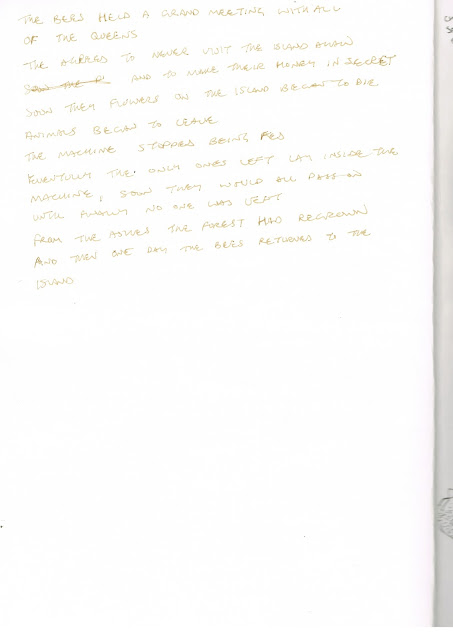 THE BEES HELD A GRAND MEETING WITH ALL
OF THE QUEENS
THE AGREED TO NEVER VISIT THE ISLAND AGAIN
AND TO MAKE THEIR HONEY IN SECRET
SOON THEY FLOWERS ON THE ISLAND BEGAN TO DIE
ANIMALS BEGAN TO LEAVE
THE MACHINE STOPPED BEING FED
EVENTUALLY THE ONLY ONES LEFT LAY INSIDE THE
MACHINE, SOON THEY WOULD ALL PASS
UNTIL FINALLY NO ONE WAS LEFT
FROM THE ASHES THE FOREST HAD REGROWN
AND THEN ONE DAY THE BEES RETURNED TO THE
ISLAND